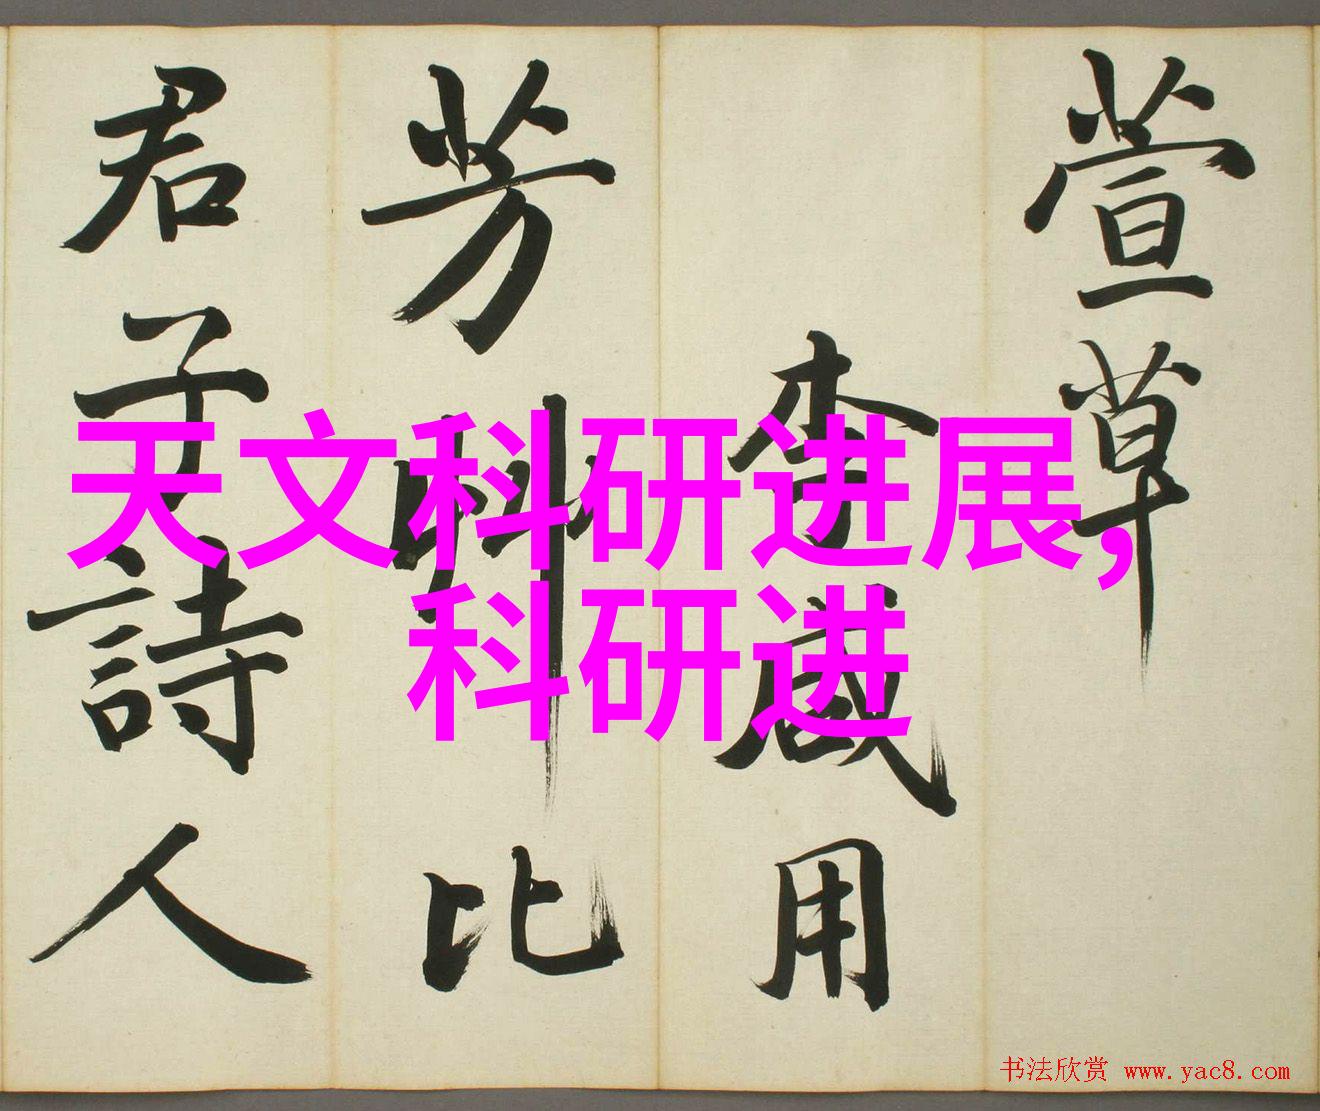 萱草
李咸用
芳草比
君子詩人
天文科研进展,
科研进
书法欣赏 www.yac8.com